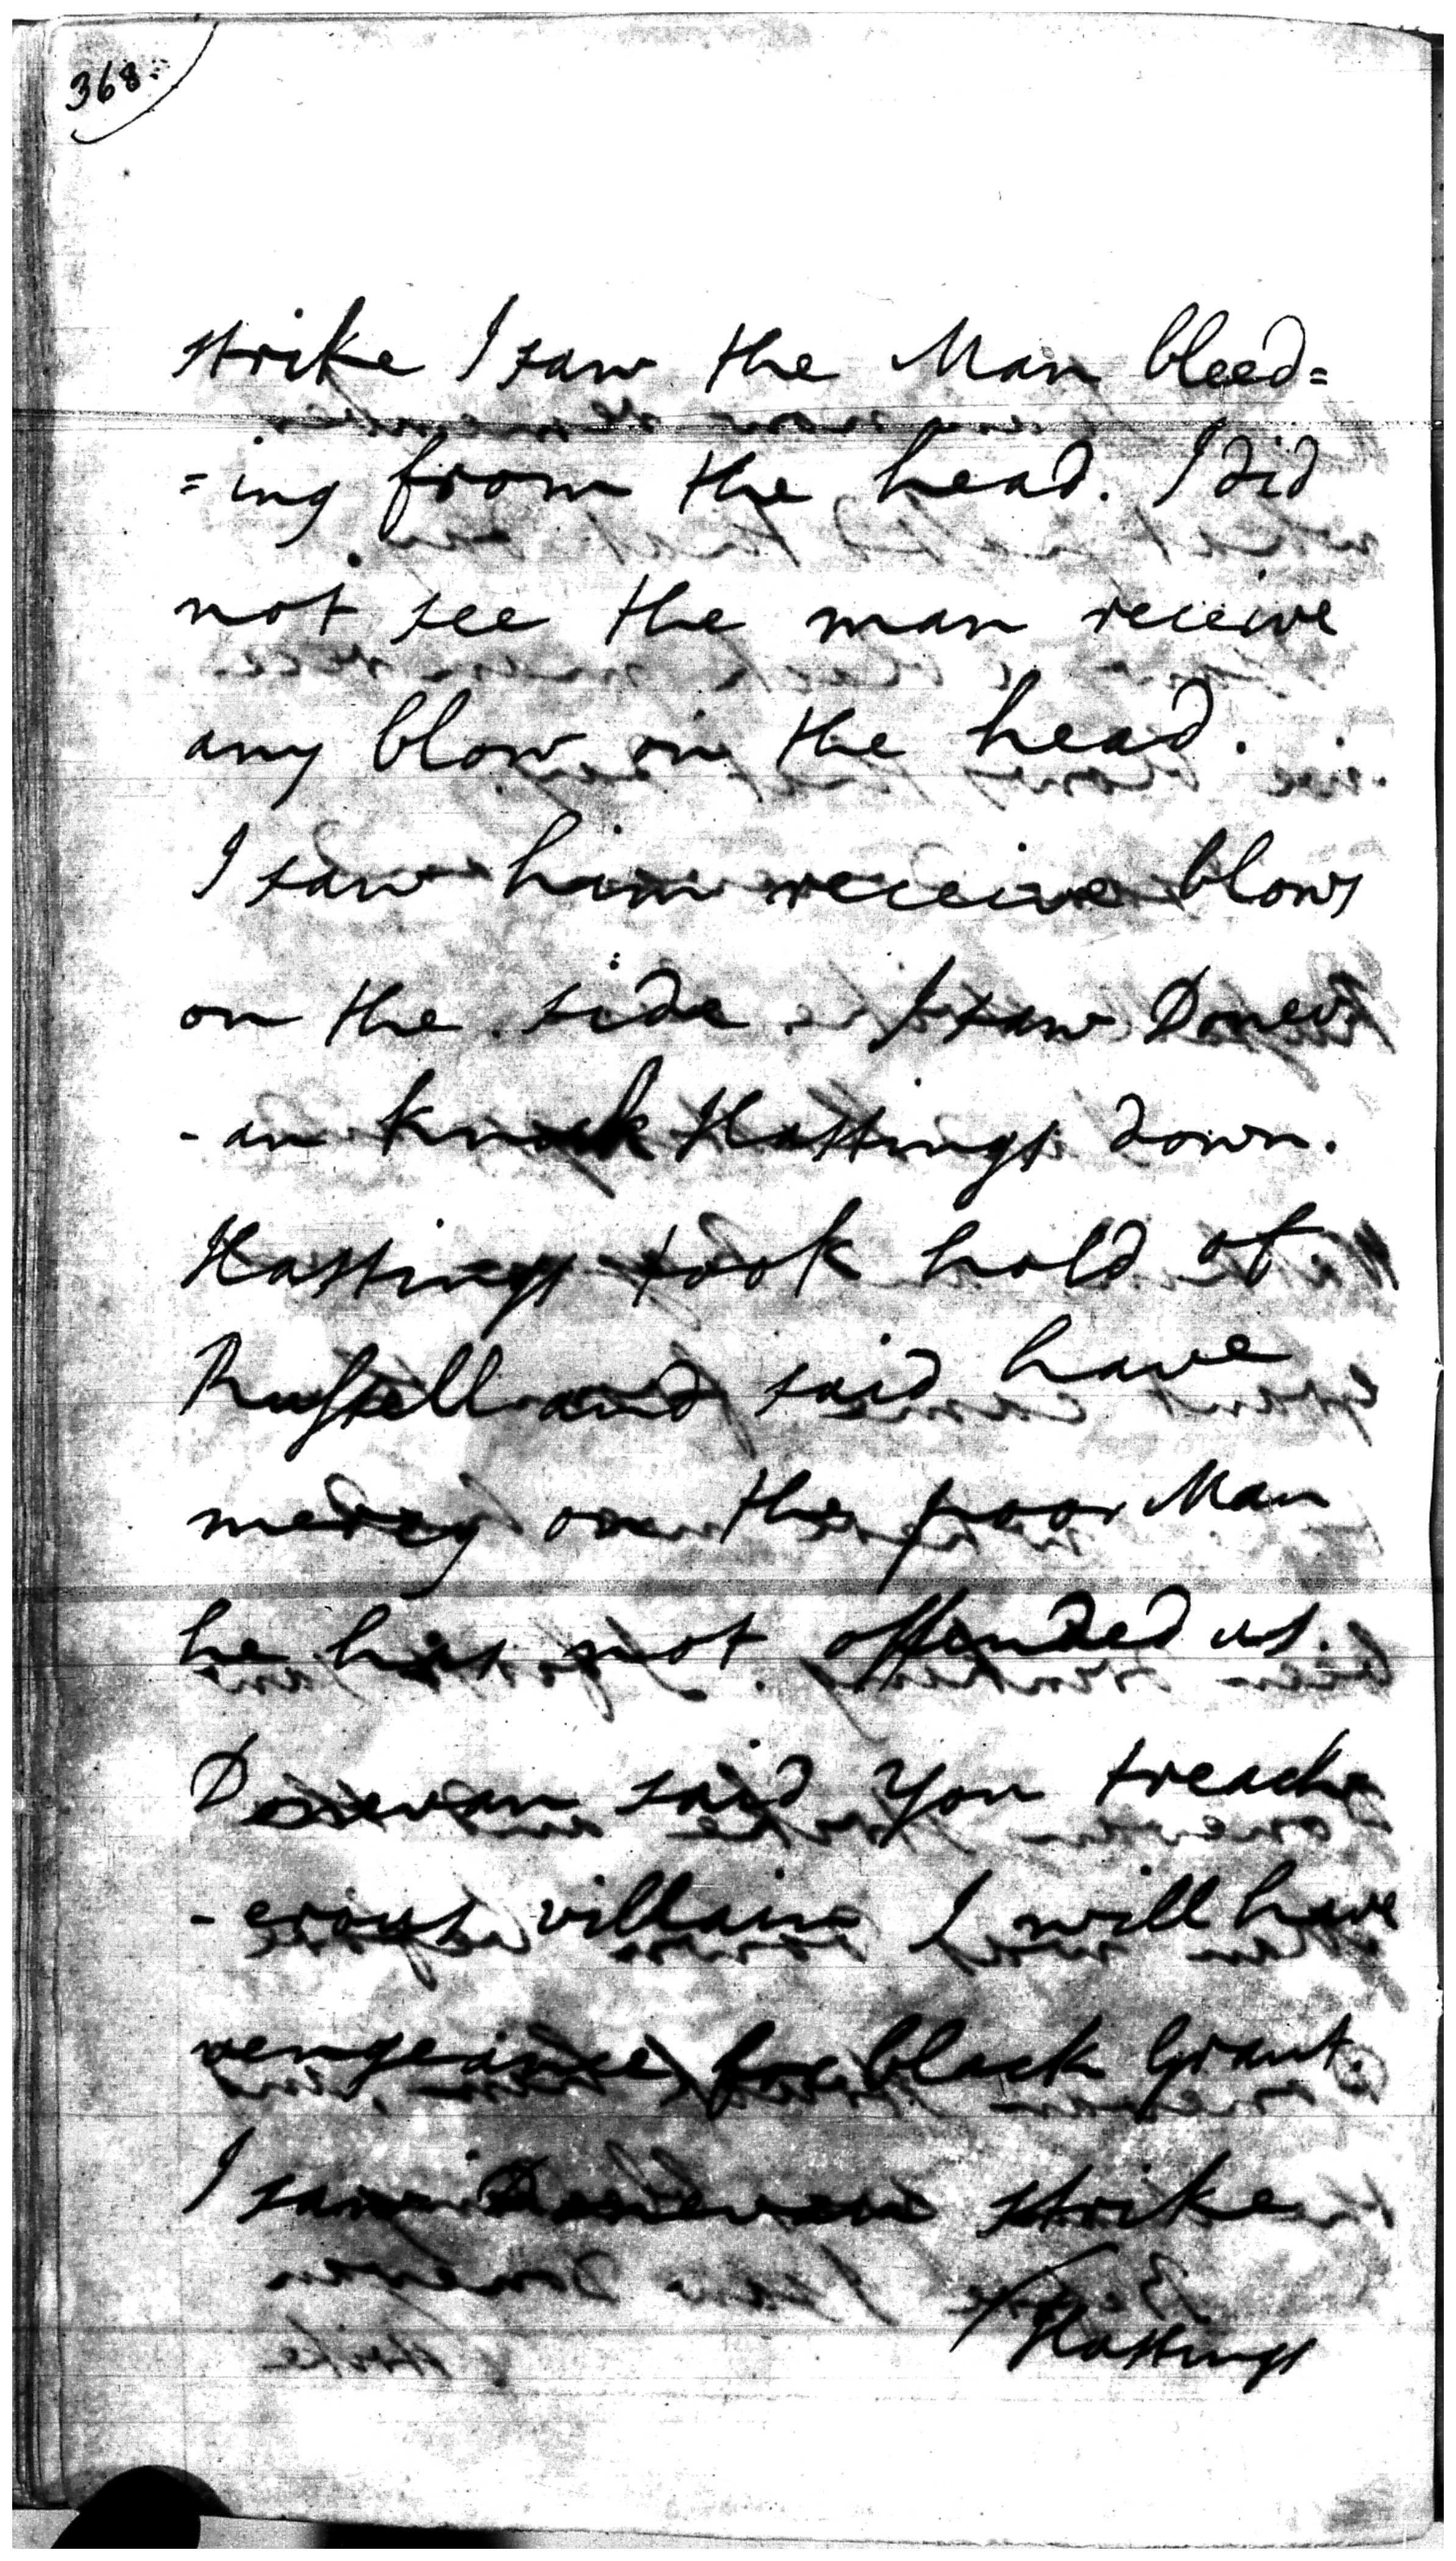 368
strike I saw the Man bleed=
=ing from the head. I did
not see the man receive
any blow on the head.
I saw him receive blows
on the side. I saw Donev
-an knock Hastings down.
Hastings took hold of
Russell and said have
mercy on the poor Man
he has not offended us.
Donevan said You treach
-erous villain I will have
vengeance for black Grant
I saw Donevan strike
Hastings